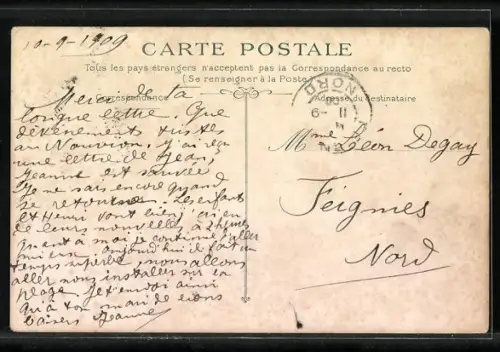 10-9-1909
CARTE POSTALE
Tous les pays étrangers n'acceptent pas la Correspondance au recto
(Se renseigner à la Poste)
Correspondance
Adresse du destinataire
NORD
11 -9
Merci de ta
longue lettre. Que
d'évènements tristes
au Nouvion. J'ai reçu
une lettre de Jean,
Jeanne est sauvée
Je ne sais encore quand
je retourne. Les enfants
et Henri vont bien, j'ai eu
de leurs nouvelles à 2 heures
Quant à moi je continue
Aujourd'hui il fait un
temps superbe, nous allons
aller nous installer sur la
plage. Je t'envoi ainsi
qu'à ton mari de bons
baisers Jeanne
Mme Léon Degay
Feignies
Nord